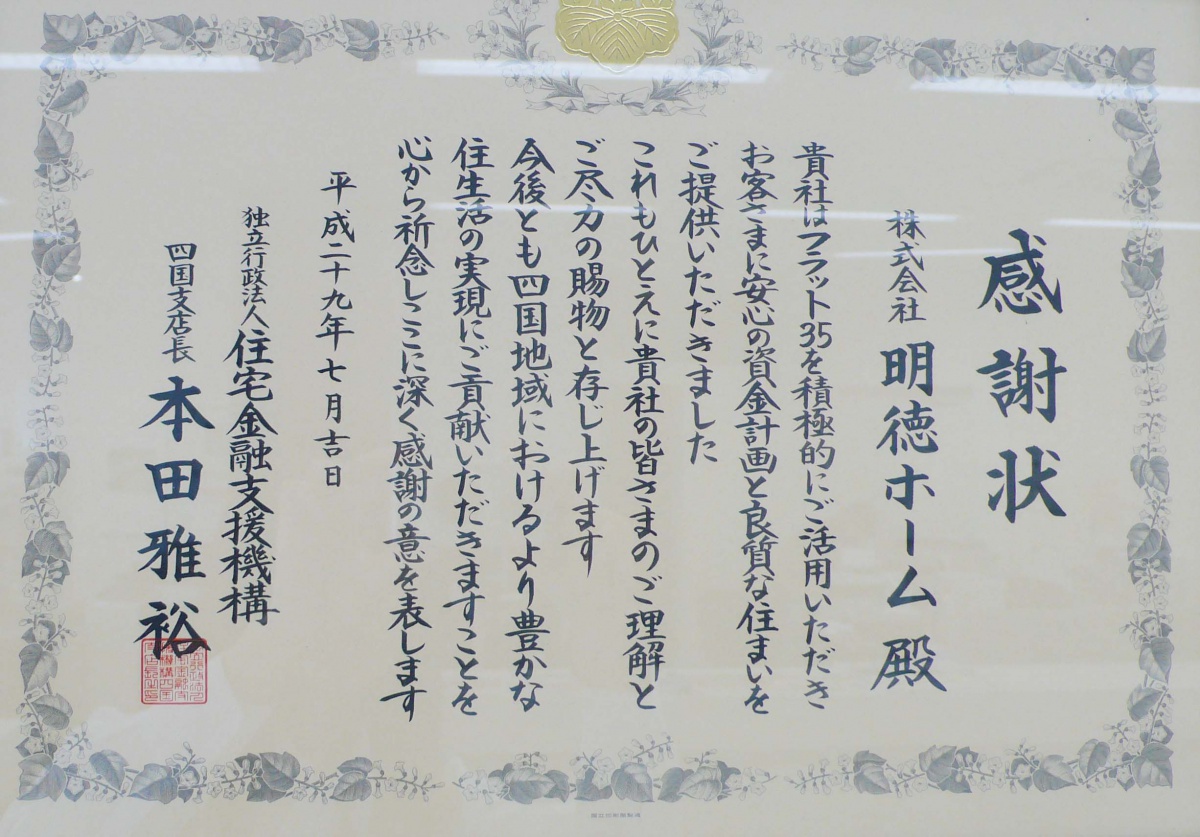 感謝状
株式会社 明徳ホーム 殿
貴社はフラット35を積極的にご活用いただき
お客さまに安心の資金計画と良質な住まいを
ご提供いただきました
これもひとえに貴社の皆さまのご理解と
ご尽力の賜物と存じ上げます
今後とも四国地域におけるより豊かな
住生活の実現にご貢献いただきますことを
心から祈念しここに深く感謝の意を表します
平成二十九年七月吉日
独立行政法人 住宅金融支援機構
四国支店長 本田雅裕